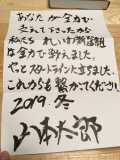 あなたが全力で
支えて下さったから
私たち れいわ新選組
は全力で戦えました。
やっとスタートラインに立ちました。
これからも繋がってください。
2019. 冬
山本太郎